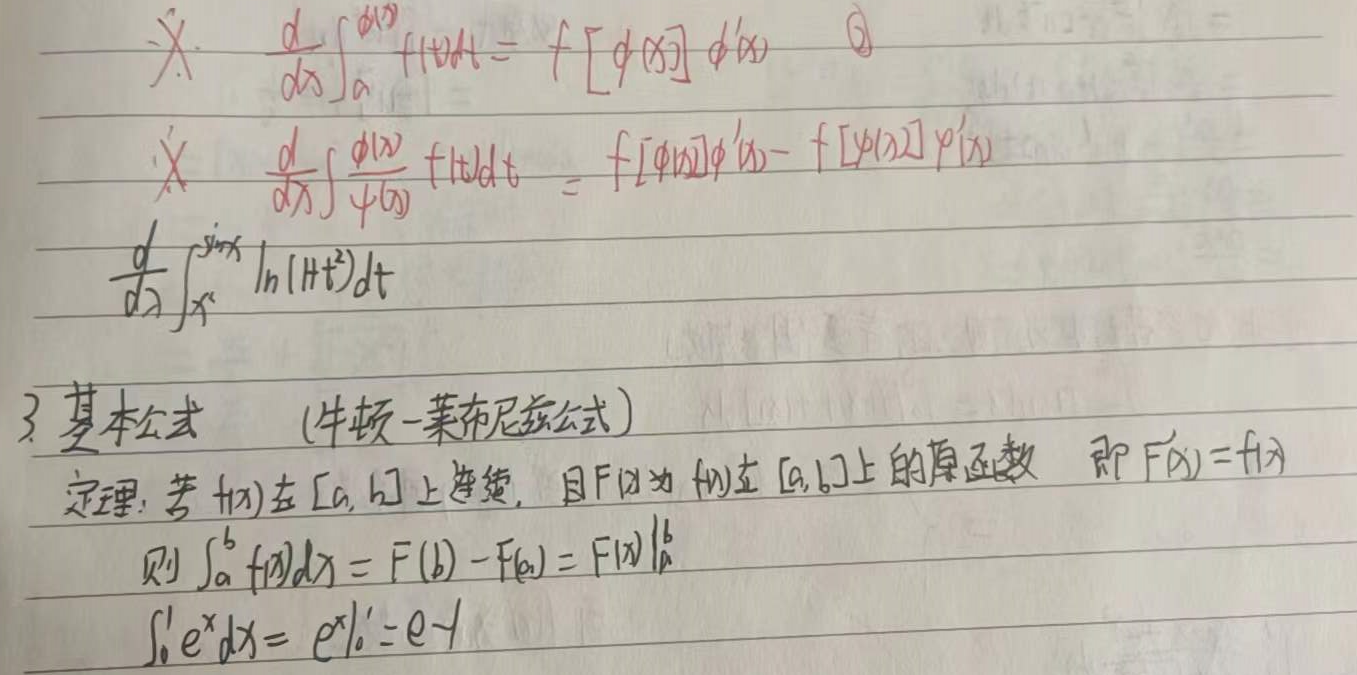 ※ d/dx ∫_a^{φ(x)} f(t)dt = f[φ(x)]φ'(x) ②
※ d/dx ∫_{ψ(x)}^{φ(x)} f(t)dt = f[φ(x)]φ'(x) - f[ψ(x)]ψ'(x)
d/dx ∫_{x²}^{sinx} ln(1+t²)dt
3. 基本公式 (牛顿-莱布尼兹公式)
定理: 若 f(x)在[a,b]上连续, 且F(x)为f(x)在[a,b]上的原函数 即F'(x)=f(x)
则 ∫_a^b f(x)dx = F(b) - F(a) = F(x)|_a^b
∫_0^1 e^x dx = e^x|_0^1 = e-1